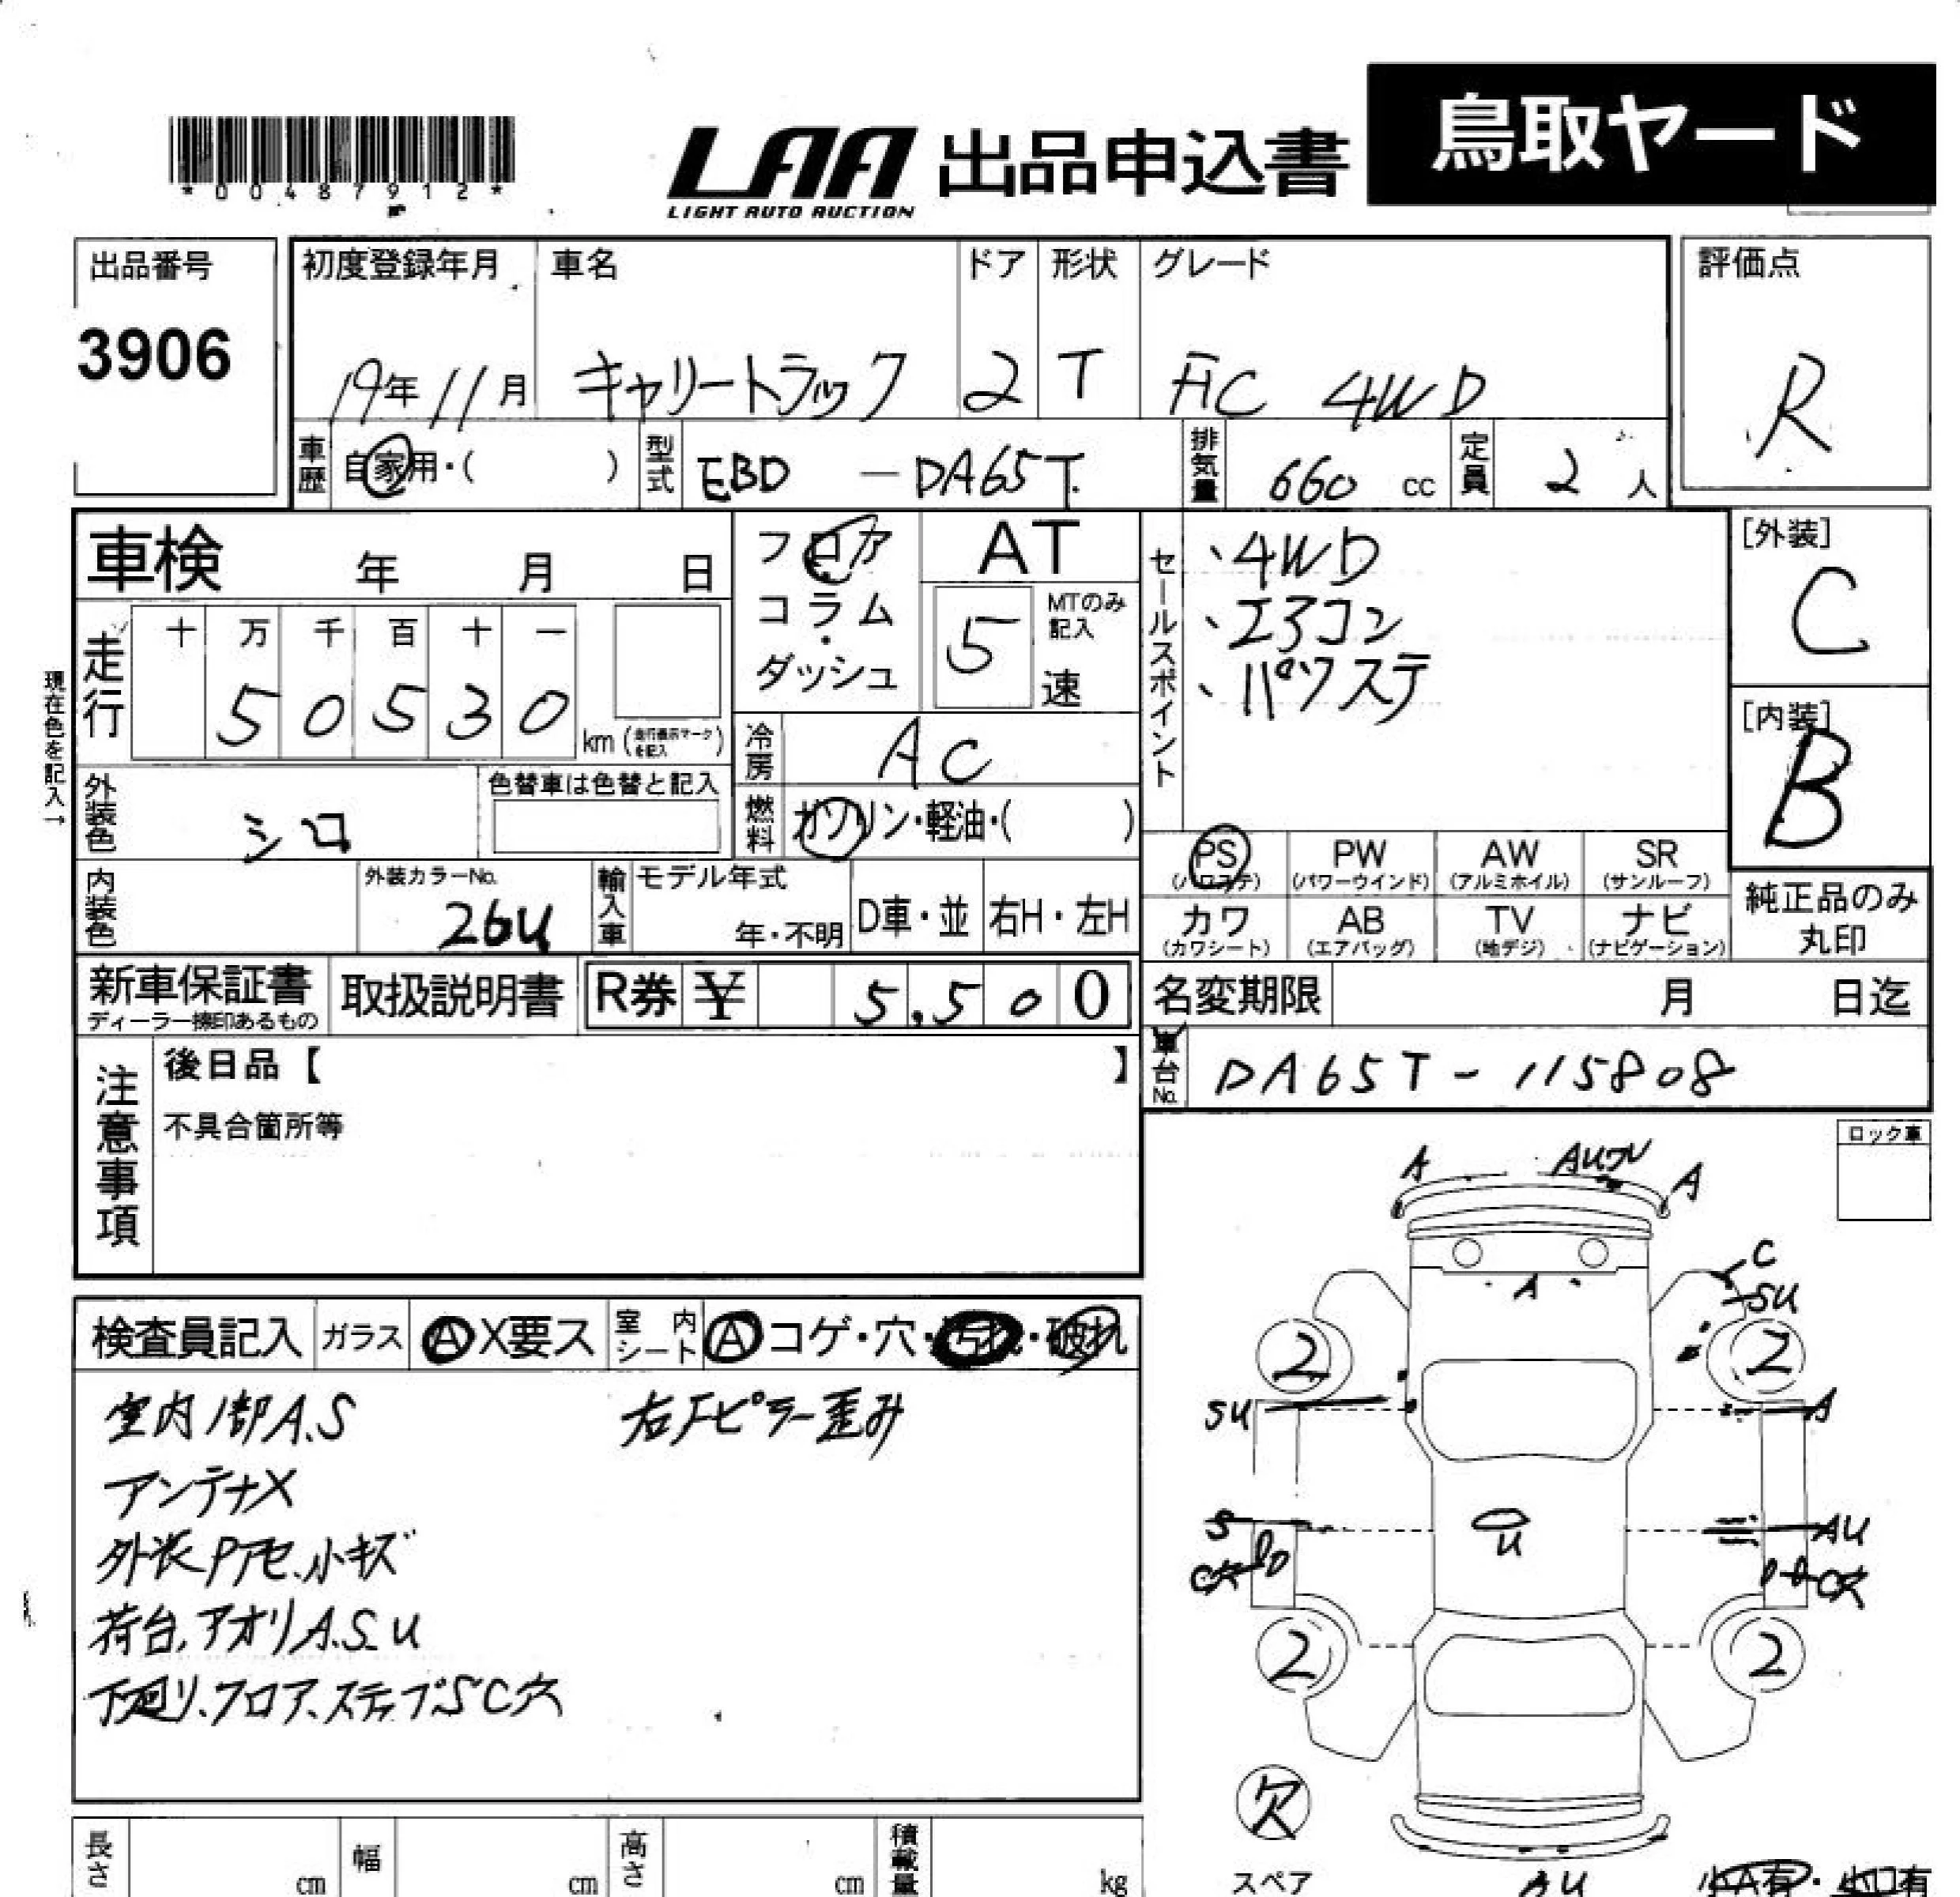 鳥取ヤード
LAA 出品申込書
LIGHT AUTO AUCTION
*00487912*
出品番号
3906
初度登録年月 車名 ドア 形状 グレード
19年11月 キャリートラック 2 T FC 4WD
評価点
R
車歴 自家用・( ) 型式 EBD - DA65T 排気量 660 cc 定員 2 人
車検 年 月 日
フロア
コラム・
ダッシュ
AT
5 MTのみ記入
速
走行 十 万 千 百 十 一
50530 km (走行表示マークを記入)
現在色を記入→
冷房 AC
外装色 シロ
色替車は色替と記入
燃料 ガソリン・軽油・( )
内装色
外装カラーNo.
26U
輸入車 モデル年式
年・不明 D車・並 右H・左H
セールスポイント
、4WD
、エアコン
、パワステ
[外装]
C
[内装]
B
PS PW AW SR
(パワステ) (パワーウインド) (アルミホイル) (サンルーフ)
カワ AB TV ナビ
(カワシート) (エアバッグ) (地デジ) (ナビゲーション)
純正品のみ
丸印
新車保証書
ディーラー捺印あるもの
取扱説明書
R券 ¥ 5,500
名変期限 月 日迄
車台No. DA65T-115808
注意事項
後日品【 】
不具合箇所等
ロック車
検査員記入 ガラス A X要ス 室内シート A コゲ・穴・汚れ・破れ
室内1部A.S 右Fピラー歪み
アンテナX
外装Pアセ.小キズ
荷台.アオリA.S.U
下廻り.フロア.ステップSC穴
A A
A
C
SU
2 2
SU A
S AU
U
2 2
欠
スペア
AU
長さ cm 幅 cm 高さ cm 積載量 kg